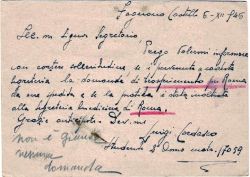 Fagnano Castello 5-XII 946
Ill.mo Signor Segretario
Prego Volermi informare
con cortese sollecitudine se è pervenuta a codesta
Segreteria la domanda di trasferimento per Roma
da me spedita e se la pratica è stata inoltrata
alla Segreteria Universitaria di Roma.
Grazie anticipate. Dev.mo
Luigi
Studente 2° Anno matr. 17059
non è giunta
nessuna
domanda